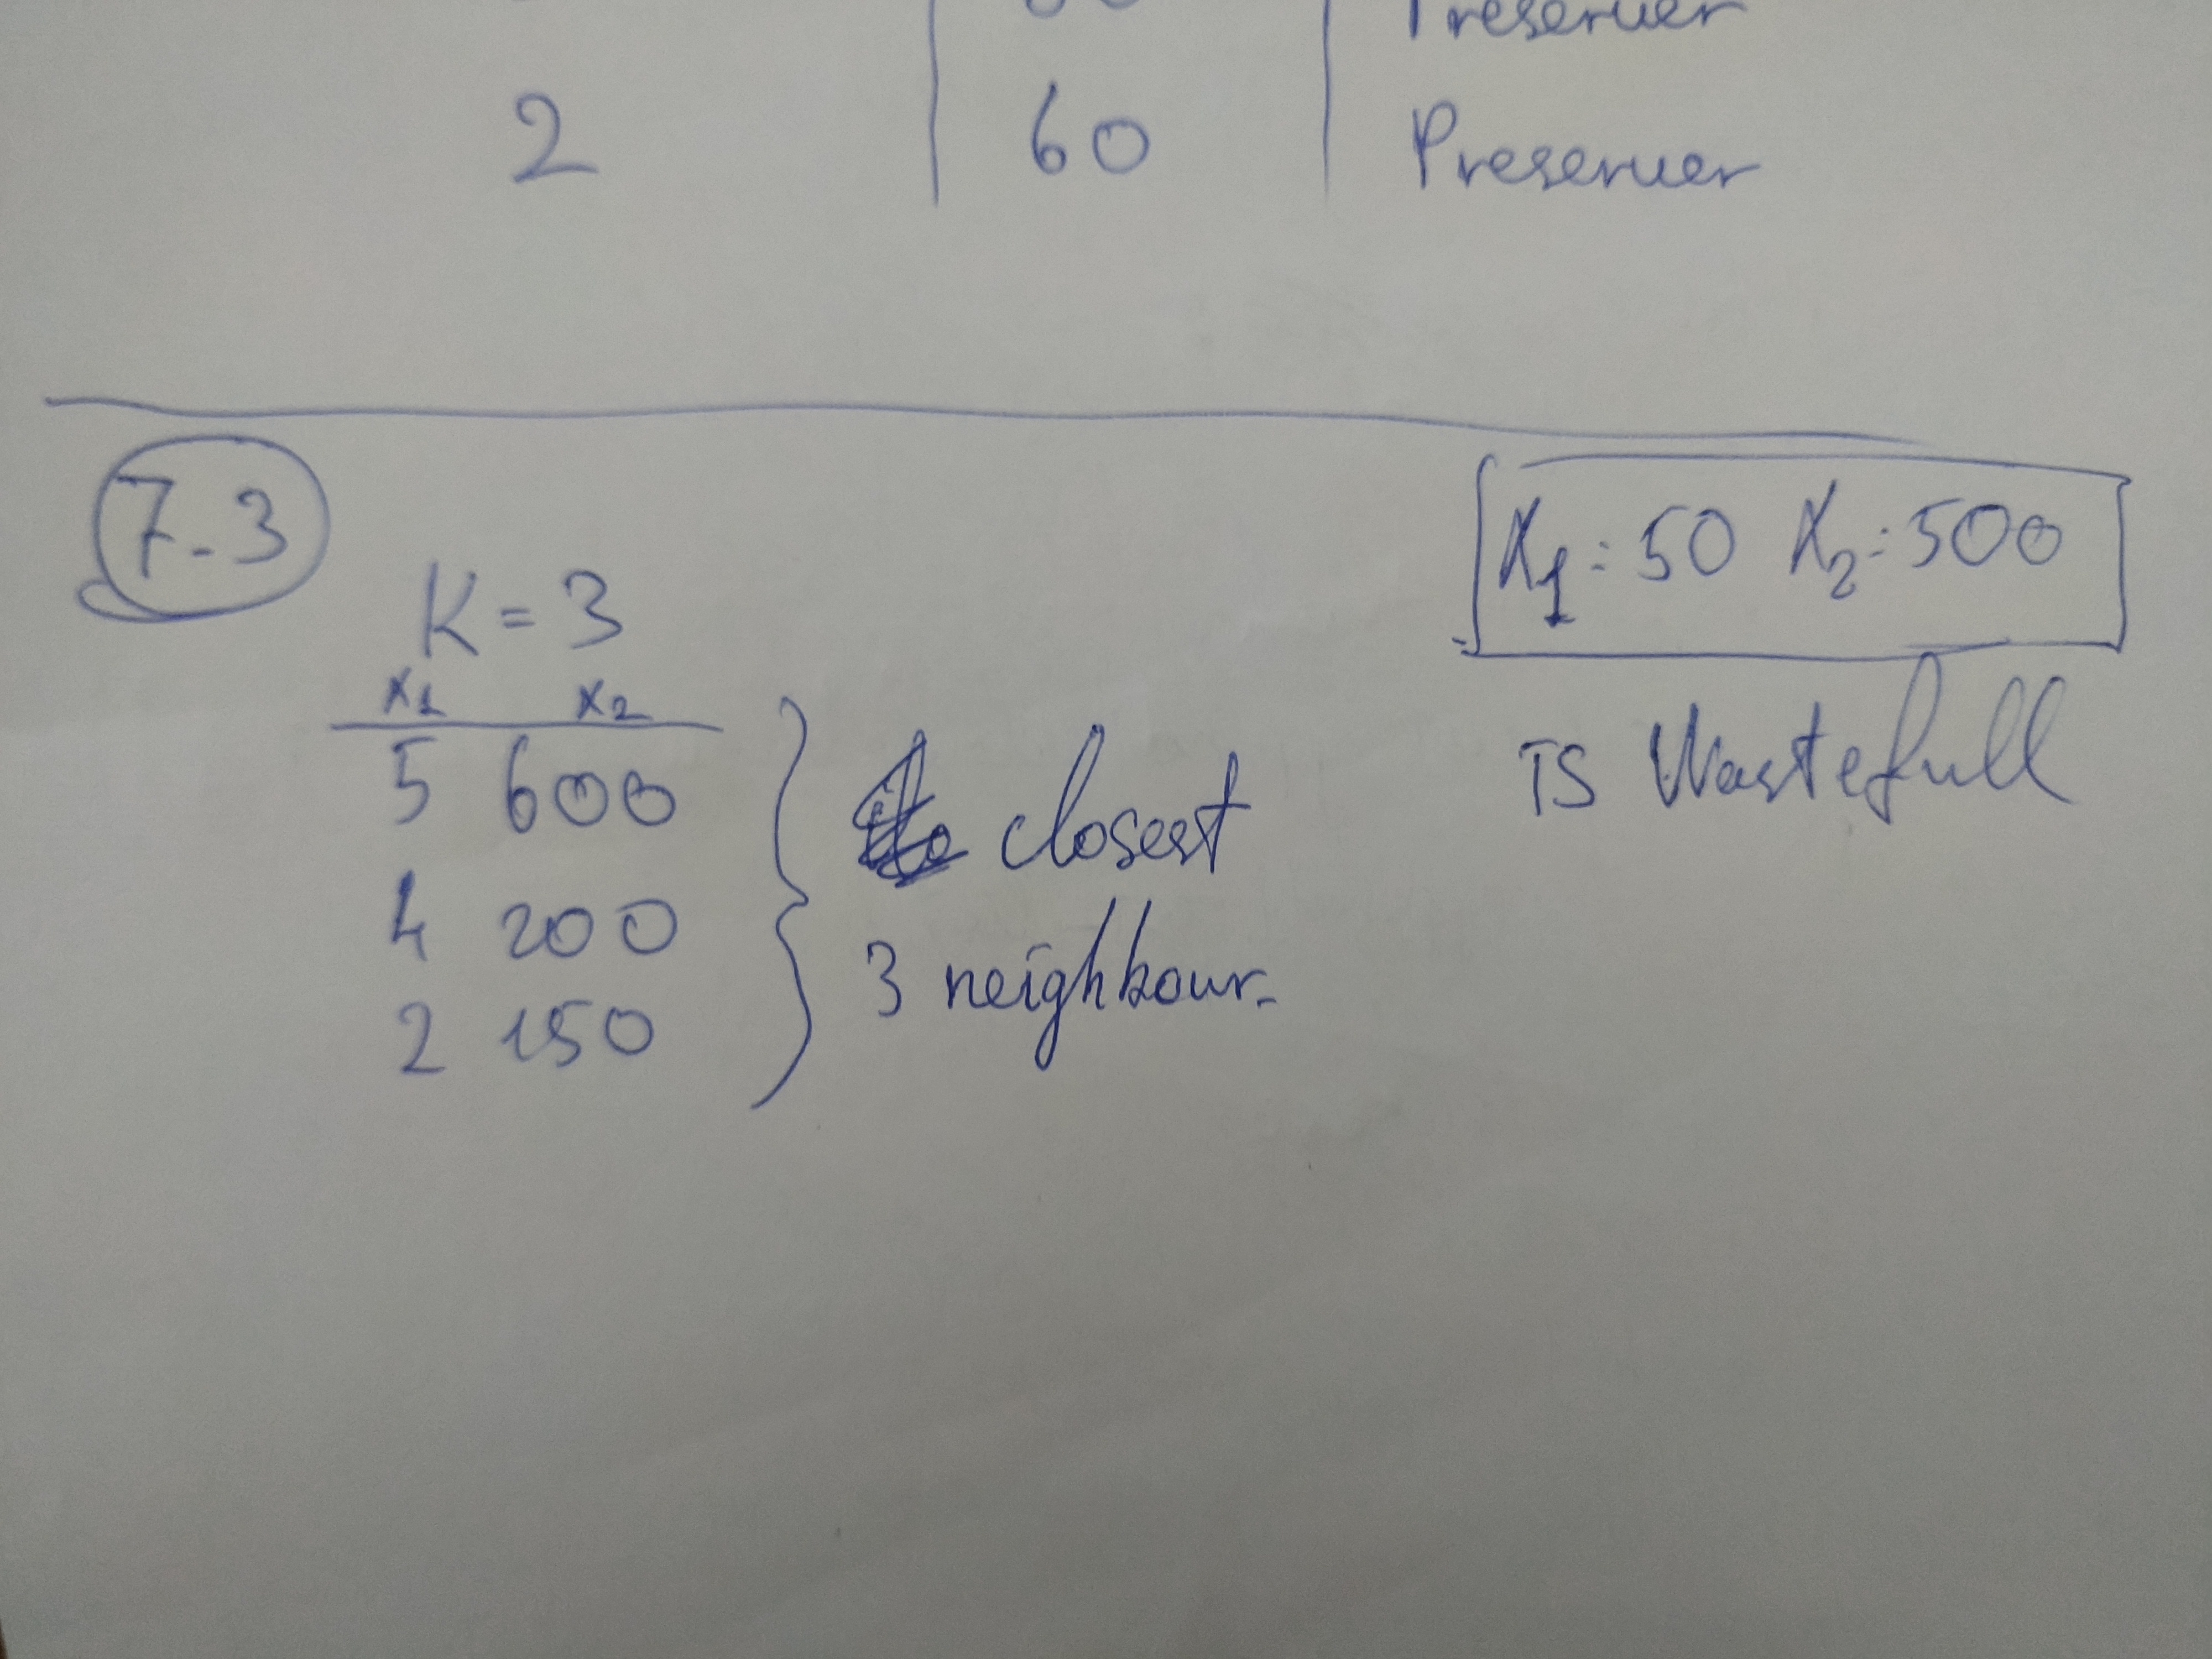 Preserver
2 60 Preserver
7-3
K = 3
x1 x2
5 600
4 200
2 150
closest
3 neighbour.
X1: 50 X2: 500
IS Wastefull